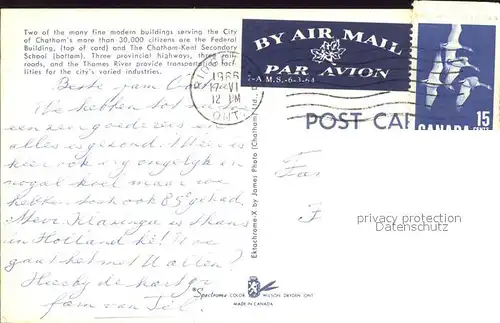 Two of the many fine modern buildings serving the City
of Chatham's more than 30,000 citizens are the Federal
Building, (top of card) and The Chatham-Kent Secondary
School (bottom). Three provincial highways, three rail-
roads, and the Thames River provide transportation faci-
lities for the city's varied industries.
Beste fam
We hebben tot nu
een zeer goede reis en
alles is gezond. Weer is
hier ook erg ongelijk en
nogal koel maar we
hebben toch ook 85° gehad.
Mevr. Klasinga is thans
in Holland hè! Hoe
gaat het met U allen?
Hierbij de hartgr
fam van Tèl.
1966
17 VI
12 PM
ONT.
BY AIR MAIL
PAR AVION
CANADA 15 CENTS
POST CAR
Fa
F
privacy protection
Ektachrome-X by James Photo (Chatham) Ltd.,
Spectrome COLOR WILSON DRYDEN ONT
MADE IN CANADA